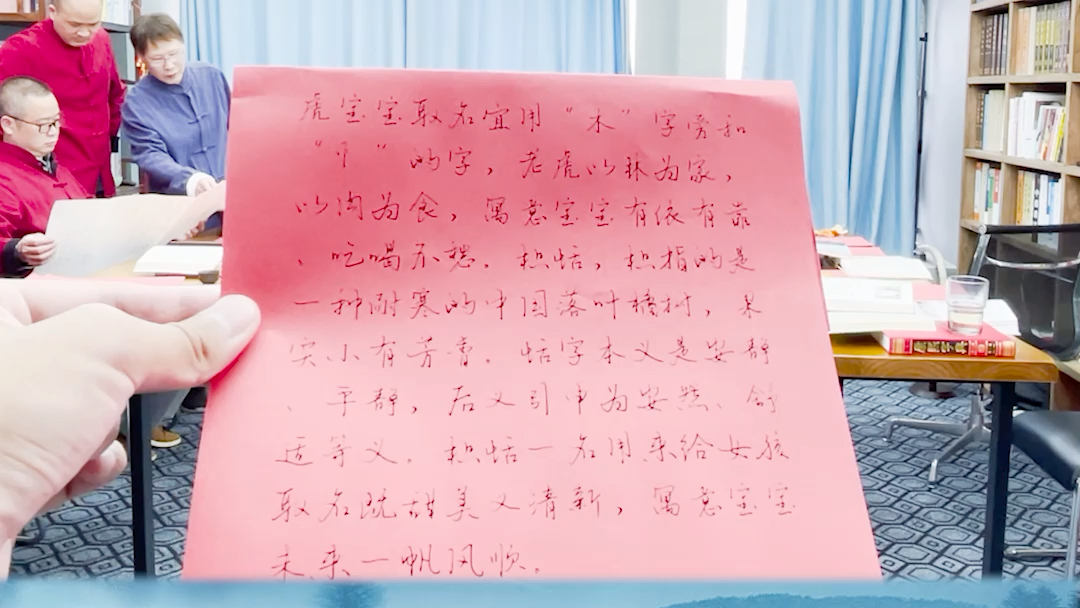 虎宝宝取名宜用“木”字旁和
“忄”的字，老虎以林为家，
以肉为食，寓意宝宝有依有靠
、吃喝不愁。枳恬，枳指的是
一种耐寒的中国落叶橘树，果
实小有芳香。恬字本义是安静
、平静，后又引申为安然、舒
适等义。枳恬一名用来给女孩
取名既甜美又清新，寓意宝宝
未来一帆风顺。